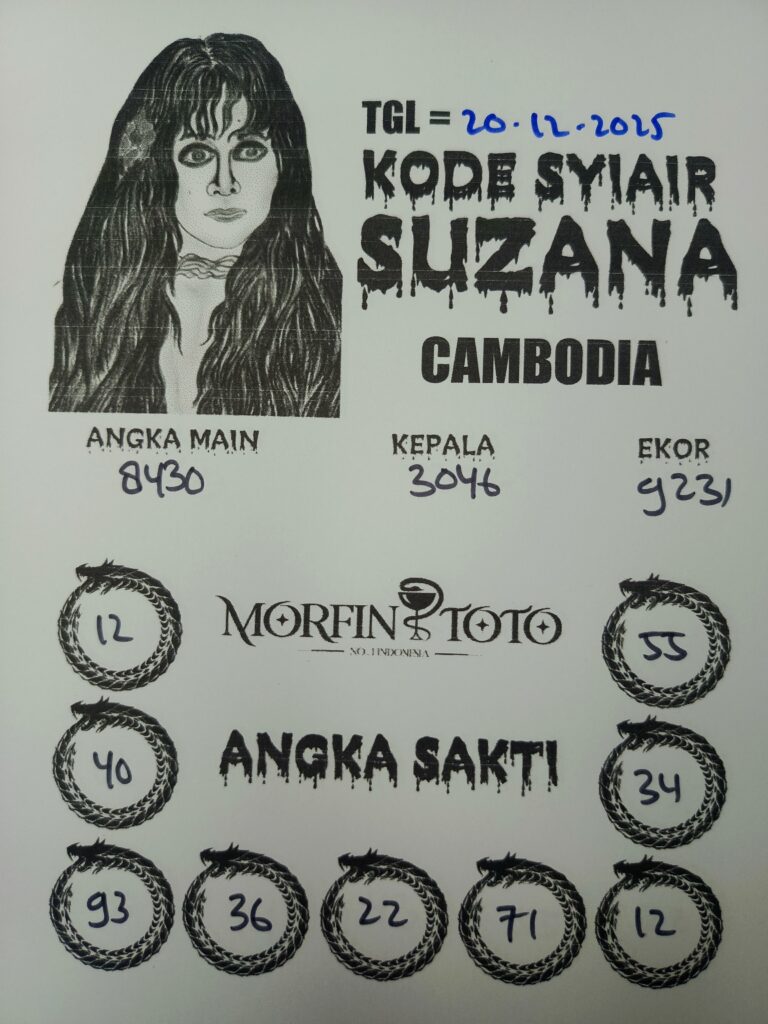 TGL = 20.12.2025
KODE SYIAIR
SUZANA
CAMBODIA
ANGKA MAIN KEPALA EKOR
8430 3046 9231
12 MORFIN TOTO 55
NO.1 INDONESIA
40 ANGKA SAKTI 34
93 36 22 71 12